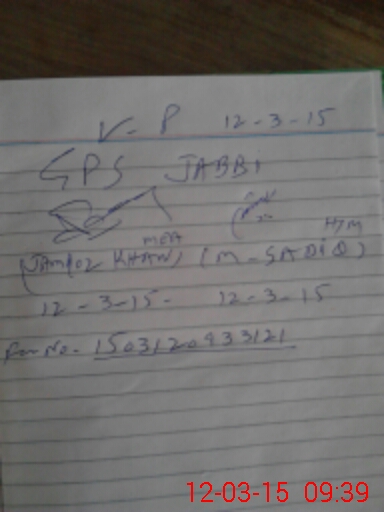 V-P 12-3-15
GPS JABBI
MEA H/M
JAMROZ KHAN) (M-SADIQ)
12-3-15- 12-3-15
For No- 1503120933121
12-03-15 09:39